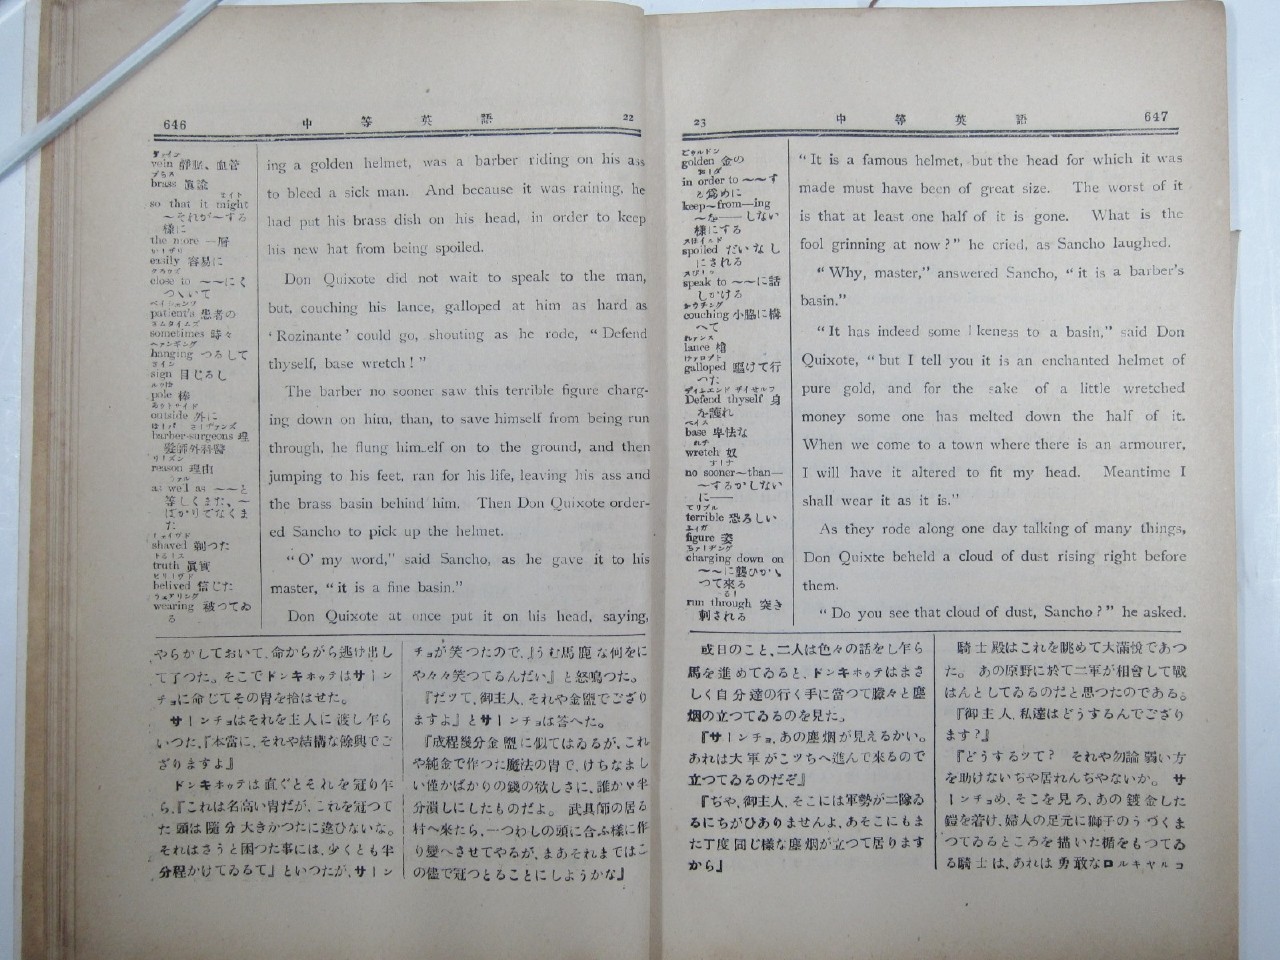 646 中等英語 22
ヴァイン
vein 靜脈、血管
ブラス
brass 眞鍮
so that it might
〜それが〜する
樣に
the more 一層
easily 容易に
close to 〜〜にく
つゝいて
patient's 患者の
サムタイムズ
sometimes 時々
ハァンギング
hanging つるして
サイン
sign 目じるし
pole 棒
アウトサイド
outside 外に
barber-surgeons 理
髮師外科醫
リーズン
reason 理由
as well as 〜〜と
等しくまた、〜
ばかりでなくま
た
シェイヴド
shaved 剃つた
truth 眞實
ビリーヴド
belived 信じた
ウェアリング
wearing 被つてゐ
る
ing a golden helmet, was a barber riding on his ass
to bleed a sick man. And because it was raining, he
had put his brass dish on his head, in order to keep
his new hat from being spoiled.
Don Quixote did not wait to speak to the man,
but, couching his lance, galloped at him as hard as
‘Rozinante’ could go, shouting as he rode, “Defend
thyself, base wretch!”
The barber no sooner saw this terrible figure charg-
ing down on him, than, to save himself from being run
through, he flung him elf on to the ground, and then
jumping to his feet, ran for his life, leaving his ass and
the brass basin behind him. Then Don Quixote order-
ed Sancho to pick up the helmet.
“O’ my word,” said Sancho, as he gave it to his
master, “it is a fine basin.”
Don Quixote at once put it on his head, saying,
やらかしておいて、命からがら逃げ出し
て了つた。そこでドンキホッテはサーン
チョに命じてその冑を拾はせた。
サーンチョはそれを主人に渡し乍ら
いつた、『本當に、それや結構な餘興でご
ざりますよ』
ドンキホッテは直ぐとそれを冠り乍
ら、『これは名高い冑だが、これを冠つて
た頭は隨分大きかつたに違ひないな。
それはさうと困つた事には、少くとも半
分程かけてゐるて』といつたが、サーン
チョが笑つたので、『うむ馬鹿な何をに
や々々笑つてるんだい』と怒鳴つた。
『だツて、御主人、それや金盥でござり
ますよ』とサーンチョは答へた。
『成程幾分金盥に似てはゐるが、これ
や純金で作つた魔法の冑で、けちなまし
い僅かばかりの錢の欲しさに、誰かゞ半
分潰しにしたものだよ。武具師の居る
村へ來たら、一つわしの頭に合ふ樣に作
り變へさせてやるが、まあそれまではこ
の儘で冠つとることにしようかな』
23 中等英語 647
golden 金の
in order to 〜〜す
る爲めに
keep〜from—ing
〜を——しない
樣にする
spoiled だいなし
にされる
speak to 〜〜に話
しかける
カウチング
couching 小脇に構
へて
lance 槍
galloped 驅けて行
つた
Defend thyself 身
を護れ
ベイス
base 卑怯な
wretch 奴
no sooner〜than—
〜するかしない
に——
テリブル
terrible 恐ろしい
figure 姿
charging down on
〜〜に襲ひかゝ
つて來る
run through 突き
刺される
“It is a famous helmet, but the head for which it was
made must have been of great size. The worst of it
is that at least one half of it is gone. What is the
fool grinning at now?” he cried, as Sancho laughed.
“Why, master,” answered Sancho, “it is a barber’s
basin.”
“It has indeed some l keness to a basin,” said Don
Quixote, “but I tell you it is an enchanted helmet of
pure gold, and for the sake of a little wretched
money some one has melted down the half of it.
When we come to a town where there is an armourer,
I will have it altered to fit my head. Meantime I
shall wear it as it is.”
As they rode along one day talking of many things,
Don Quixte beheld a cloud of dust rising right before
them.
“Do you see that cloud of dust, Sancho?” he asked.
或日のこと、二人は色々の話をし乍ら
馬を進めてゐると、ドンキホッテはまさ
しく自分達の行く手に當つて朦々と塵
烟の立つてゐるのを見た。
『サーンチョ、あの塵烟が見えるかい。
あれは大軍がこツちへ進んで來るので
立つてゐるのだぞ』
『ぢや、御主人、そこには軍勢が二隊ゐ
るにちがひありませんよ、あそこにもま
た丁度同じ樣な塵烟が立つて居ります
から』
騎士殿はこれを眺めて大滿悅であつ
た。あの原野に於て二軍が相會して戰
はんとしてゐるのだと思つたのである。
『御主人、私達はどうするんでござり
ます?』
『どうするツて? それや勿論弱い方
を助けないぢや居れんぢやないか。サ
ーンチョめ、そこを見ろ、あの鍍金した
鎧を着け、婦人の足元に獅子のうづくま
つてゐるところを描いた楯をもつてゐ
る騎士は、あれは勇敢なロルキャルコ